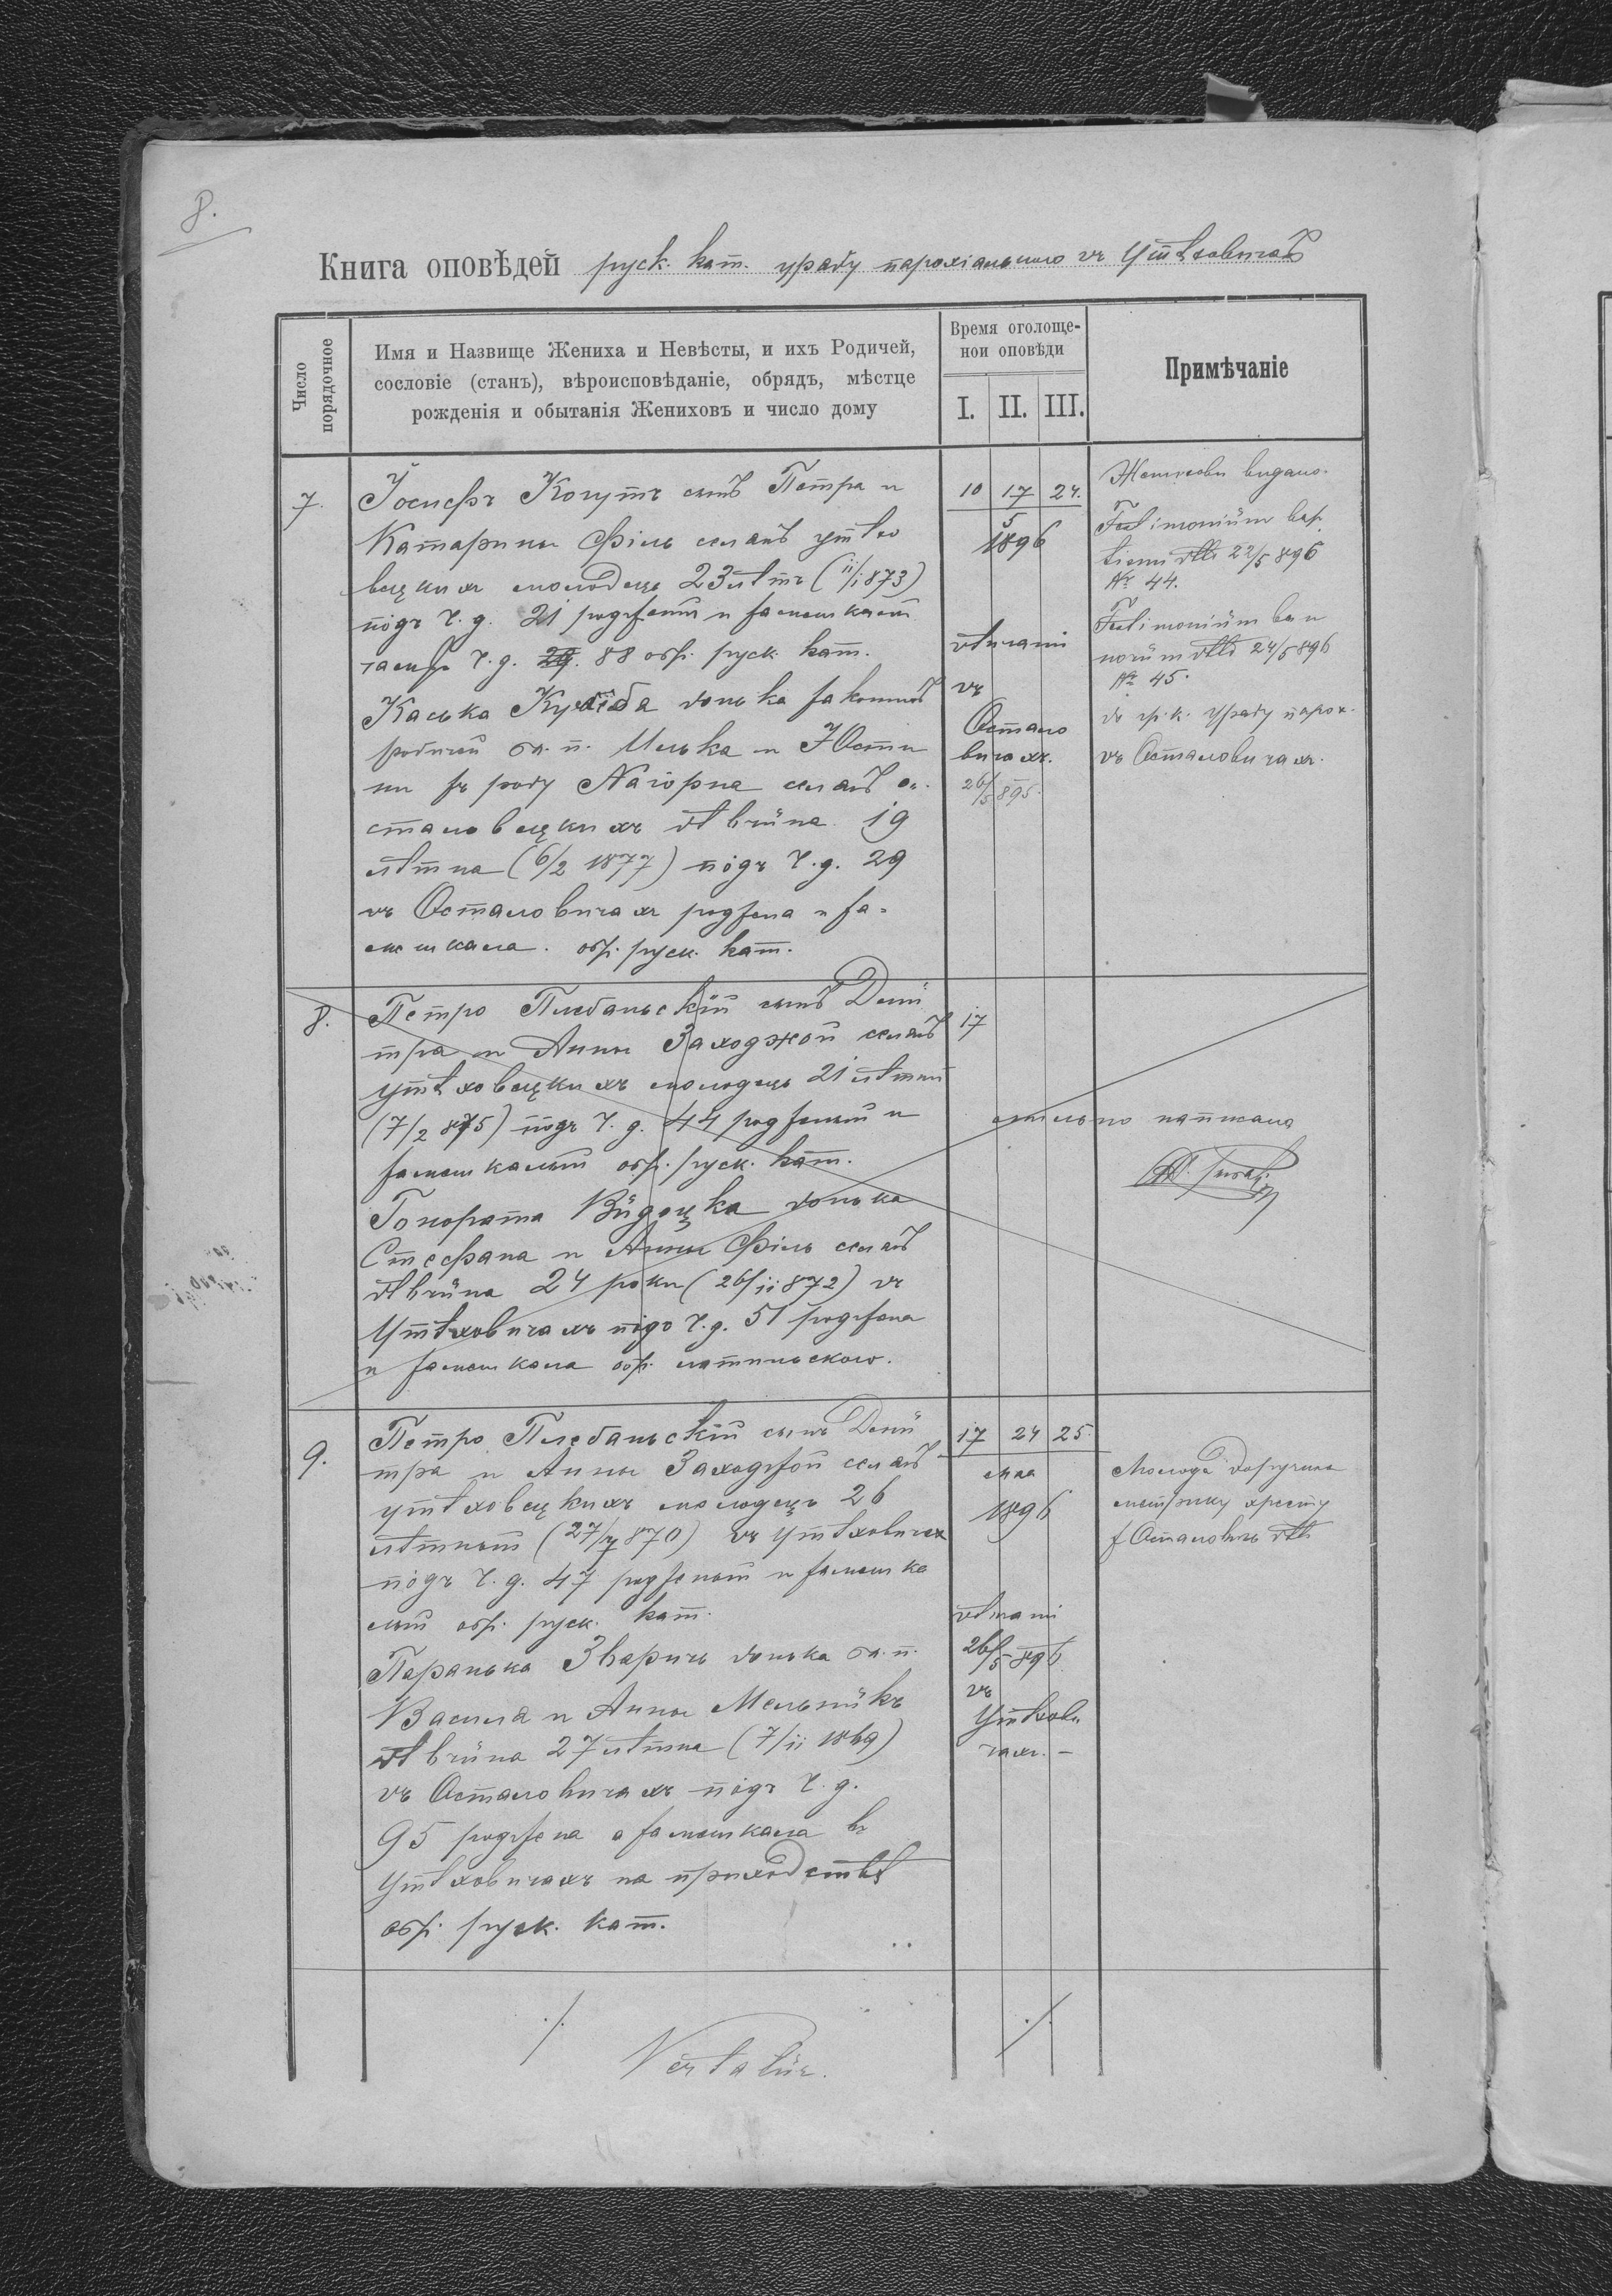 8.
Книга оповѣдей руск. кат. уряду парохіального въ Утѣховичахъ
Число порядочное
Имя и Назвище Жениха и Невѣсты, и ихъ Родичей,
сословіе (станъ), вѣроисповѣданіе, обрядъ, мѣстце
рожденія и обытанія Жениховъ и число дому
Время оголоще-
нои оповѣди
I. II. III.
Примѣчаніе
7.
Іосифъ Когутъ сынъ Петра и
Катарины Філь селянъ утѣхо
вецкихъ молодець 23 лѣтъ (11/1 873)
підъ ч. д. 21 родженый и замешкалый
ч. д. 29. 88 обр. руск. кат.
Каська донька законныхъ
родичей бл. п. Илька и Юсти
ны зъ роду Нагорна селянъ о-
сталовецкихъ дѣвчина 19
лѣтна (6/2 1877) підъ ч. д. 29
въ Осталовичахъ роджена и за-
мешкала. обр. руск. кат.
10 17 24.
5
1896
вѣнчани
въ
Остало
вичахъ.
26/5 895.
Женихови видано.
Testimonium bap
tismi dtto 22/5 896
№ 44.
Testimonium ban
norum dtto 24/5 896
№ 45.
до гр. к. Уряду парох.
въ Осталовичахъ.
8.
Петро Плебаньскій сынъ Дми
тра и Анны Заходжой селянъ
утѣховецкихъ молодець 21 лѣтный
(7/2 875) підъ ч. д. 44 родженый и
замешкалый обр. руск. кат.
Гонората Видоцка донька
Стефана и Анны Філь селянъ
дѣвчина 24 роки (26/11 872) въ
Утѣховичахъ підъ ч. д. 51 роджена
и замешкала обр. латиньского.
17
мильно написана
9.
Петро Плебаньскій сынъ Дми
тра и Анны Заходжой селянъ
утѣховецкихъ молодець 26
лѣтный (27/7 870) въ Утѣховичах
підъ ч. д. 47 родженый и замешка
лый обр. руск. кат.
Параська Зваричъ донька бл. п.
Василя и Анны Мельникъ
дѣвчина 27 лѣтна (7/11 1869)
въ Осталовичахъ підъ ч. д.
95 роджена а замешкала въ
Утѣховичахъ на приходствѣ
обр. руск. кат.
17 24 25.
мая
1896
вѣнчани
26/5 896
въ
Утѣхови
чахъ. –
Молода доручила
метрику хресту
з Осталовичъ dtto
./. ./.
Vertatur.